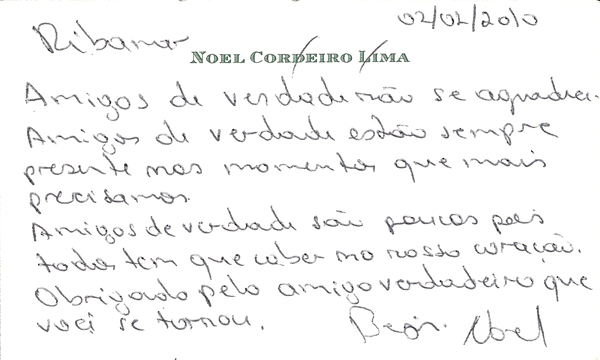 02/02/2010
Ribamar
NOEL CORDEIRO LIMA
Amigos de verdade não se agradece.
Amigos de verdade estão sempre
presente nos momentos que mais
precisamos.
Amigos de verdade são poucos pois
todos tem que caber no nosso coração.
Obrigado pelo amigo verdadeiro que
você se tornou.
Noel